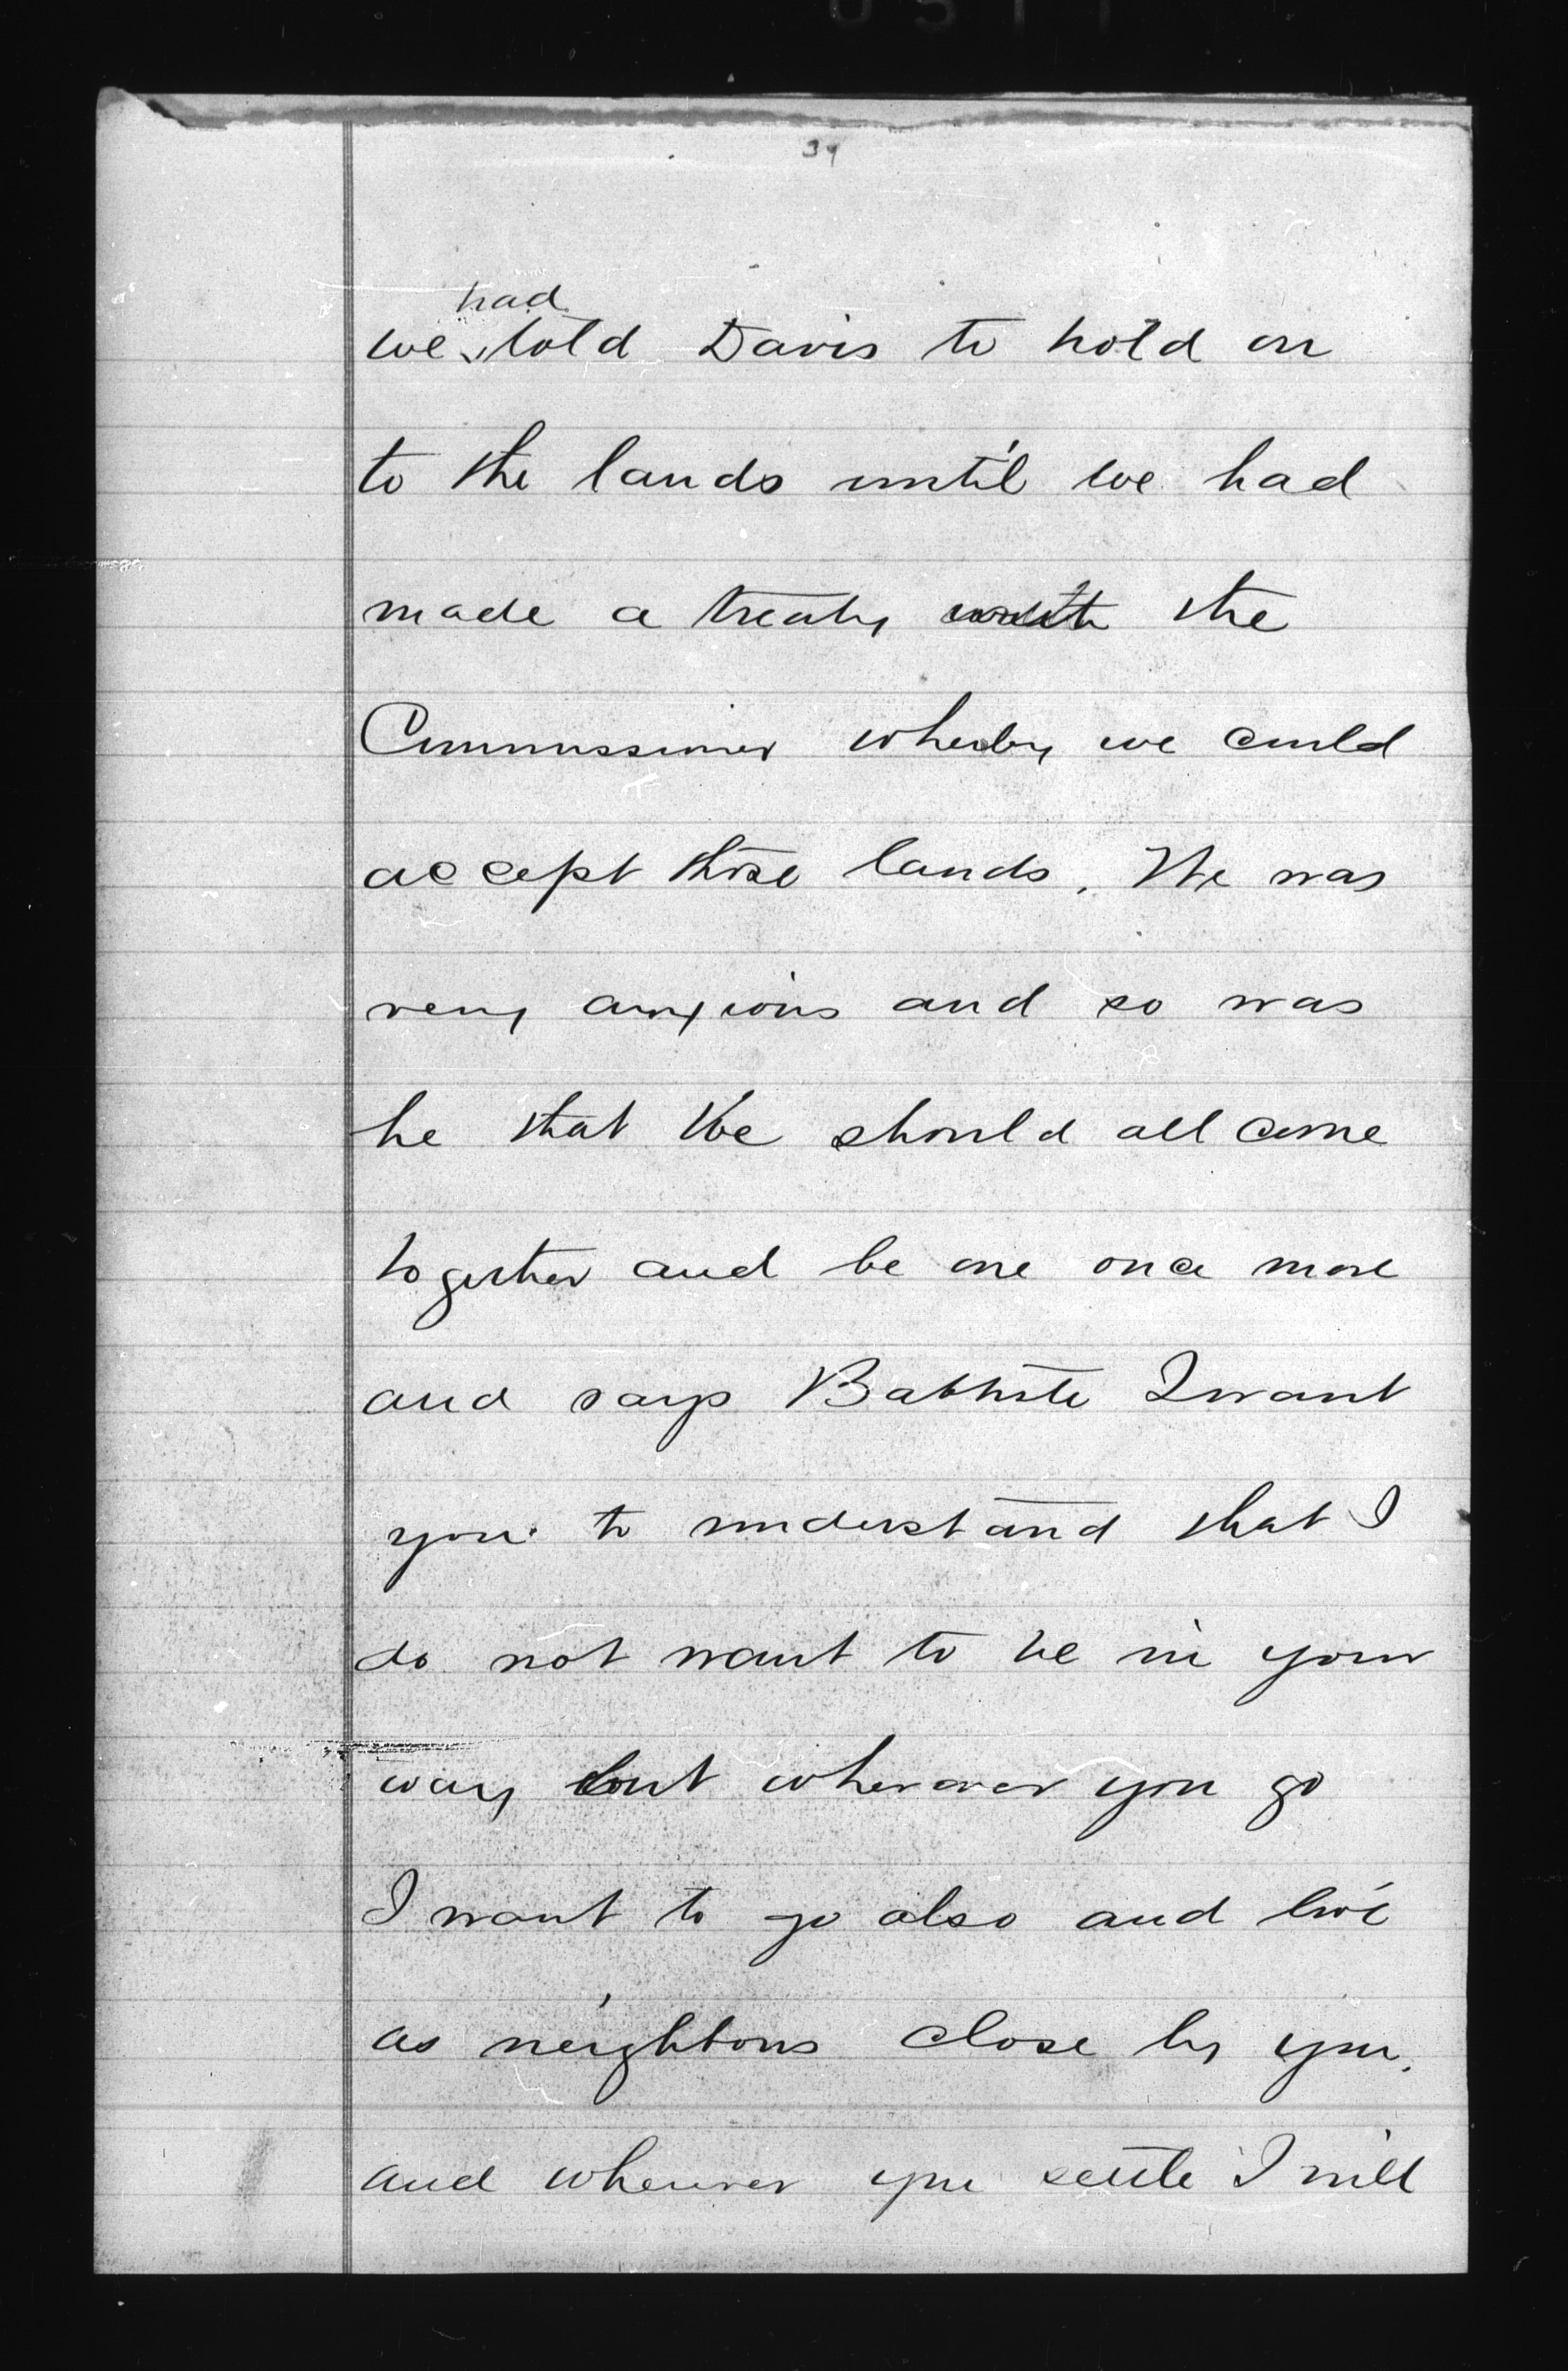 39
had
we told Davis to hold on
to the lands until we had
made a treaty with the
Commissioner wherby we could
accept those lands. He was
very anxious and so was
he that We should all come
together and be one once more
and says Babtiste I want
you to understand that I
do not want to be in your
way but wherever you go
I want to go also and live
as neighbours close by you.
and wherever you settle I will